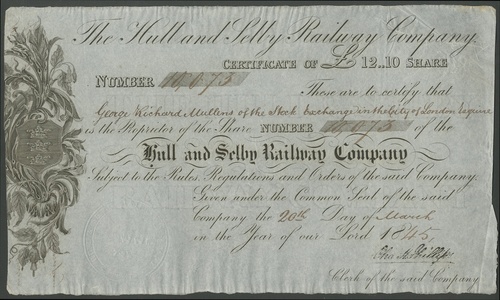 The Hull and Selby Railway Company
CERTIFICATE OF £12..10 SHARE
NUMBER 10,673
These are to certify that
George Richard Mullins of the Stock Exchange in the City of London Esquire
is the Proprietor of the Share NUMBER 10,673 of the
Hull and Selby Railway Company
Subject to the Rules, Regulations and Orders of the said Company.
Given under the Common Seal of the said
Company the 20th Day of March
in the Year of our Lord 1845.
Phillips
Clerk of the said Company